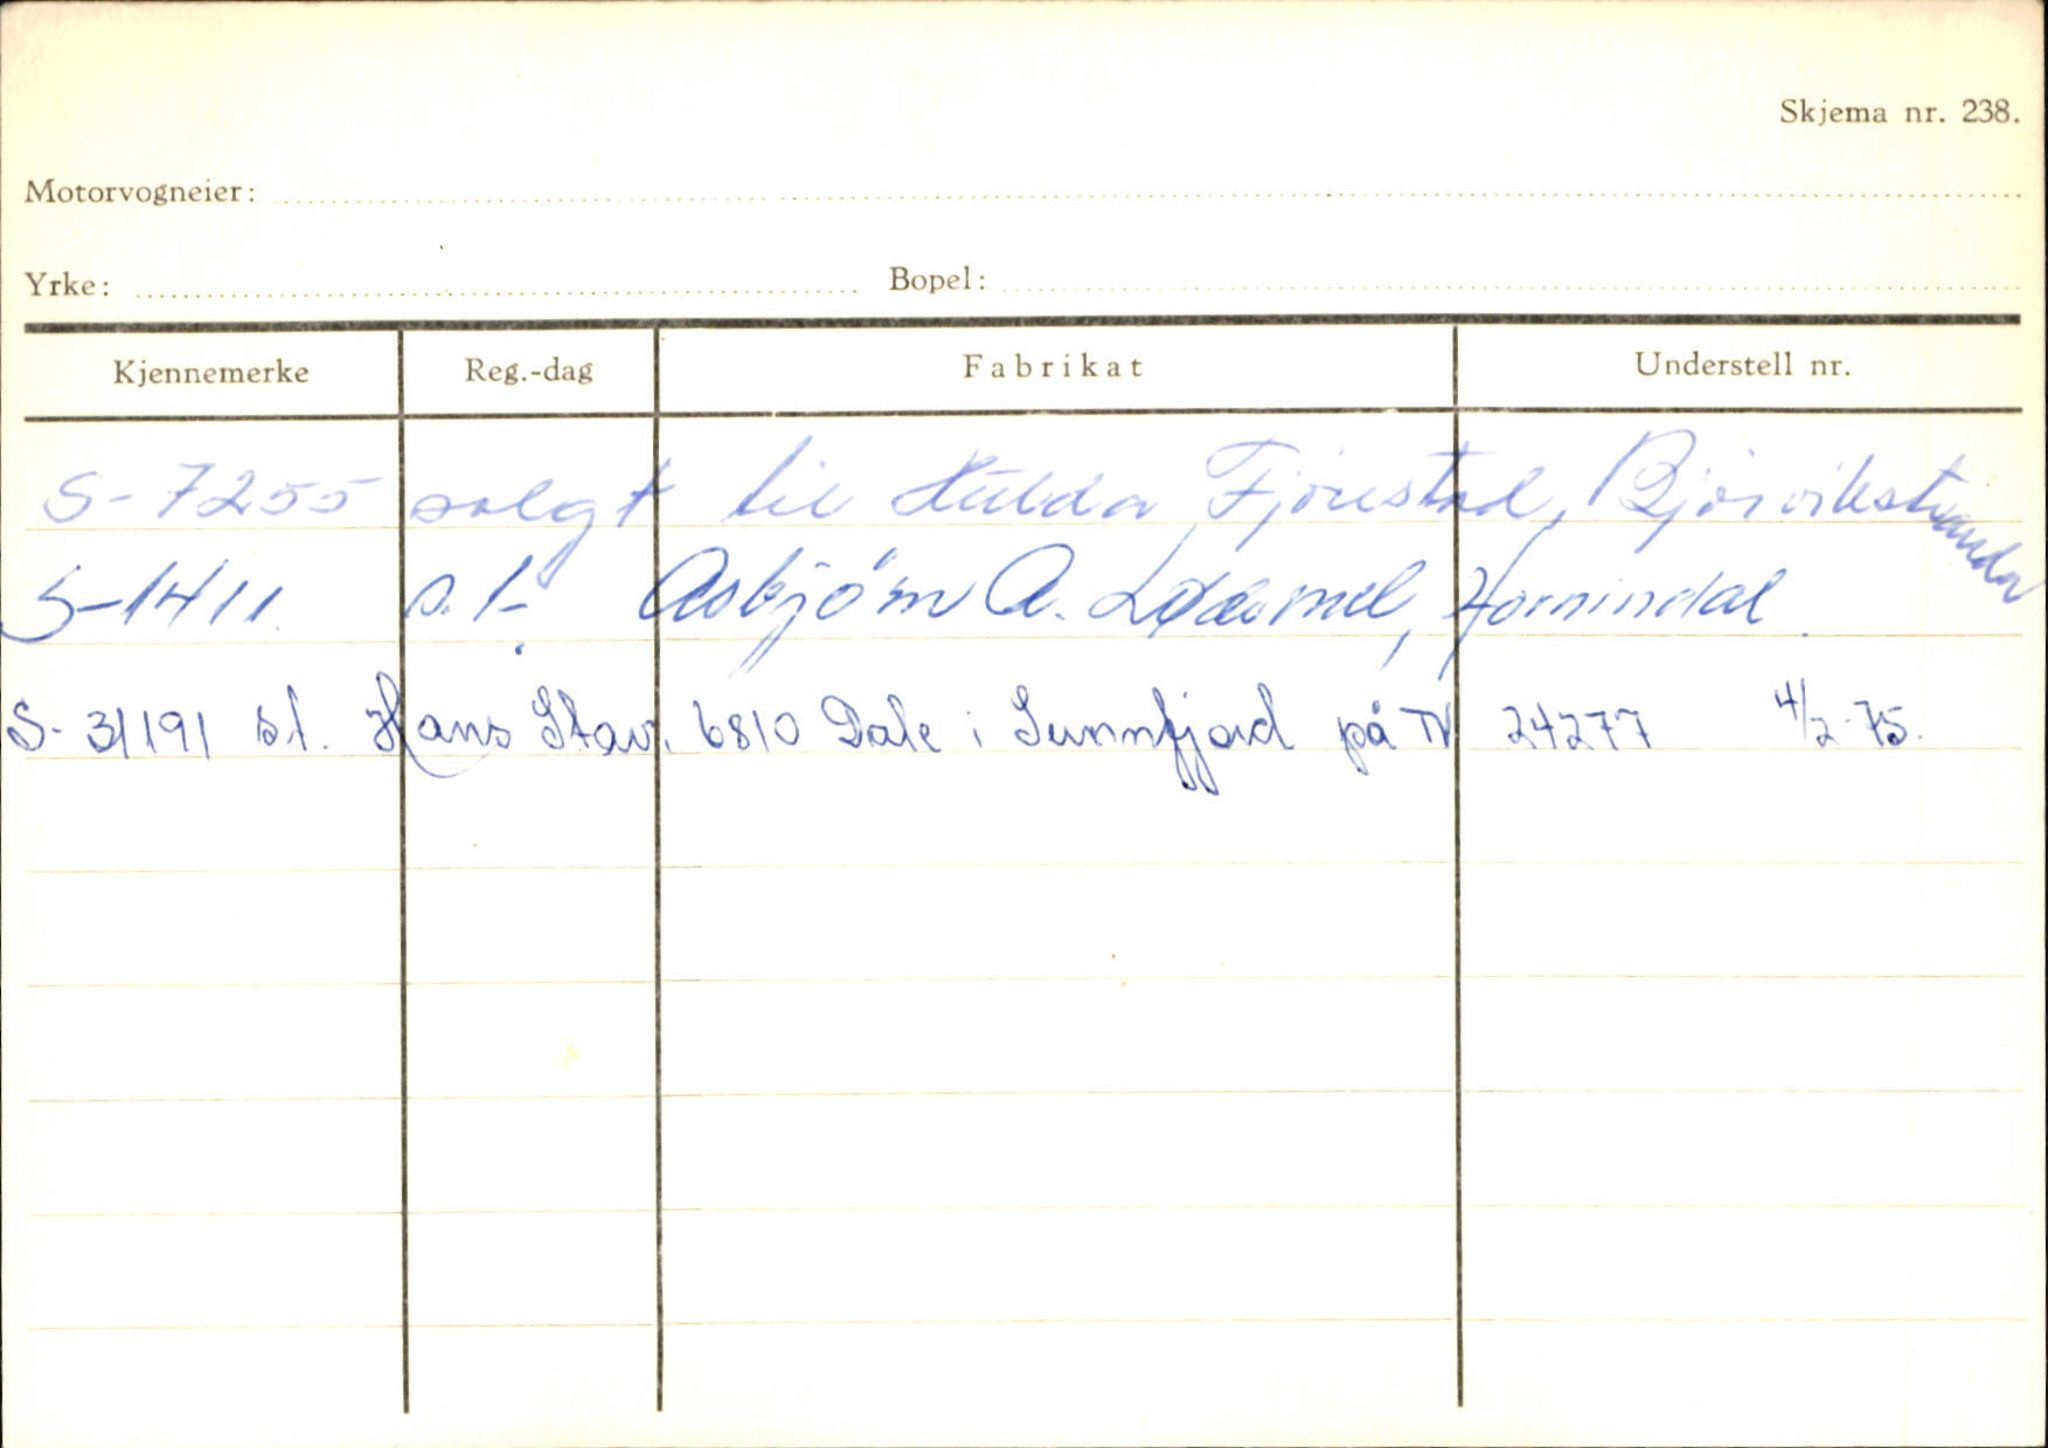 Skjema nr. 238.
Motorvogneier:
Yrke: Bopel:
Kjennemerke Reg.-dag Fabrikat Understell nr.
S-7255 solgt til Hulda Fjørestad, Bjørvikstranda
S-1411. s.t. Asbjørn A. Hornindal.
S-31191 s.t. Hans Stav. 6810 Dale i Sunnfjord på TV 24277 4/2-75.